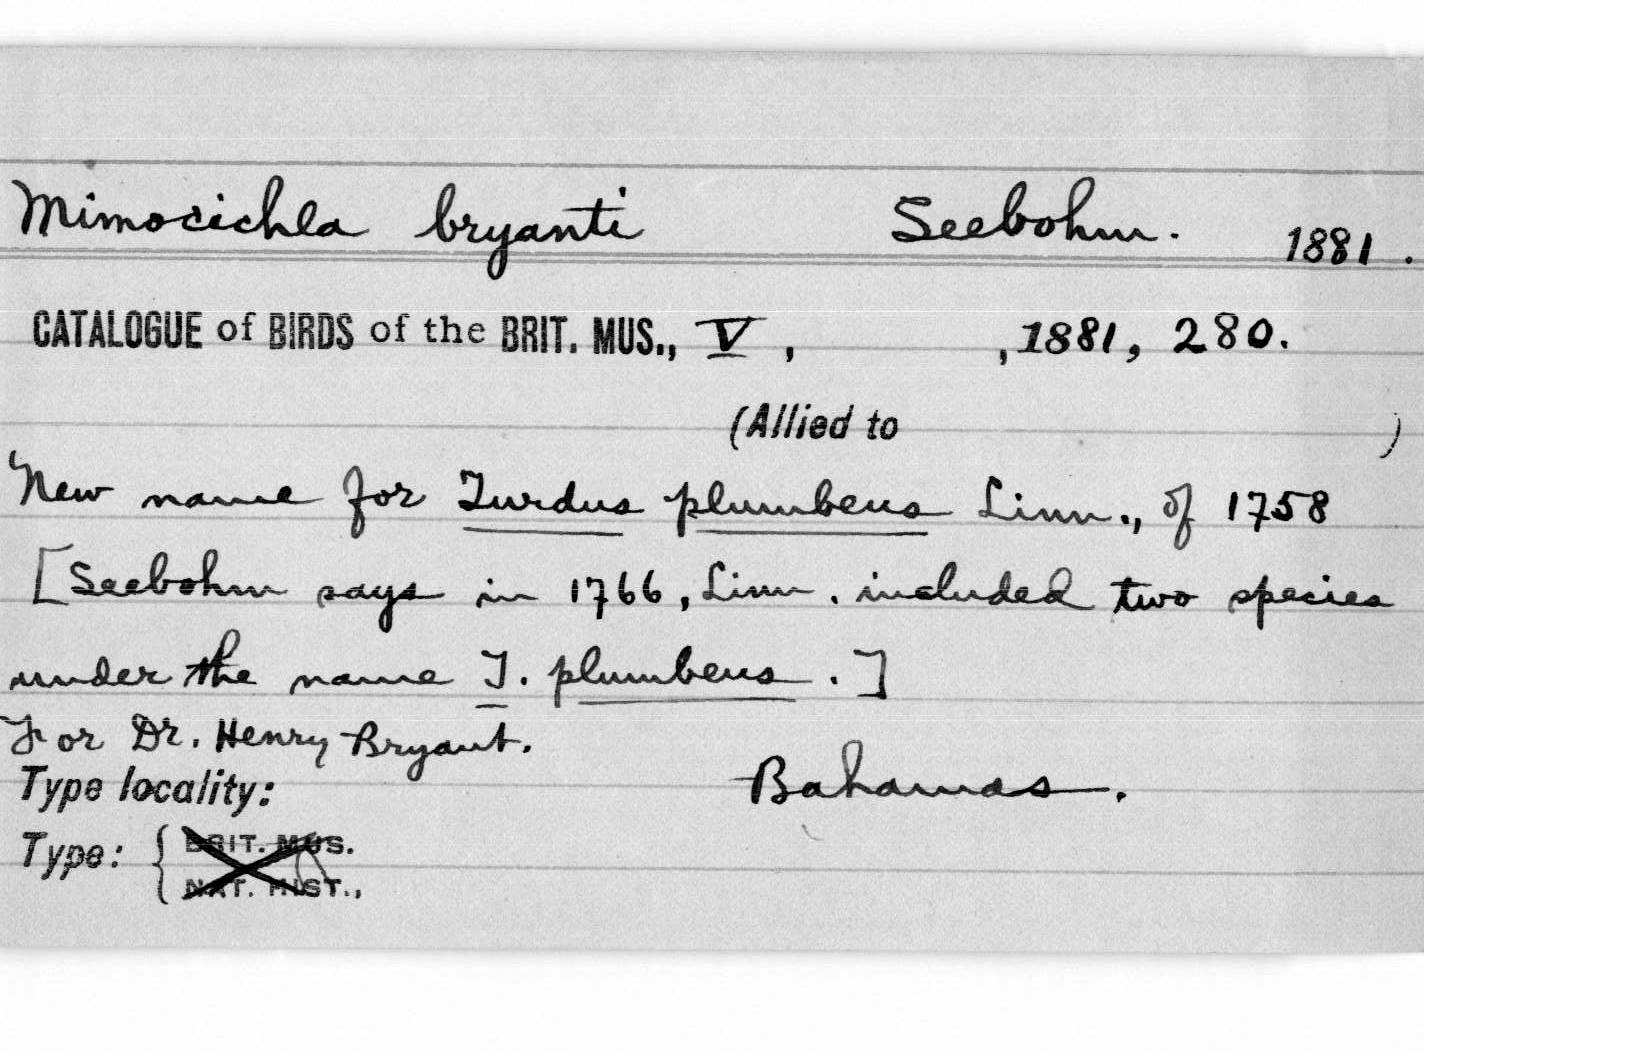 Mimocichla bryanti Seebohm. 1881.
CATALOGUE of BIRDS of the BRIT. MUS., V, , 1881, 280.
(Allied to )
New name for Turdus plumbeus Linn., of 1758
[Seebohm says in 1766, Linn. included two species
under the name T. plumbeus.]
For Dr. Henry Bryant.
Type locality: Bahamas.
Type: { BRIT. MUS.
NAT. HIST.,